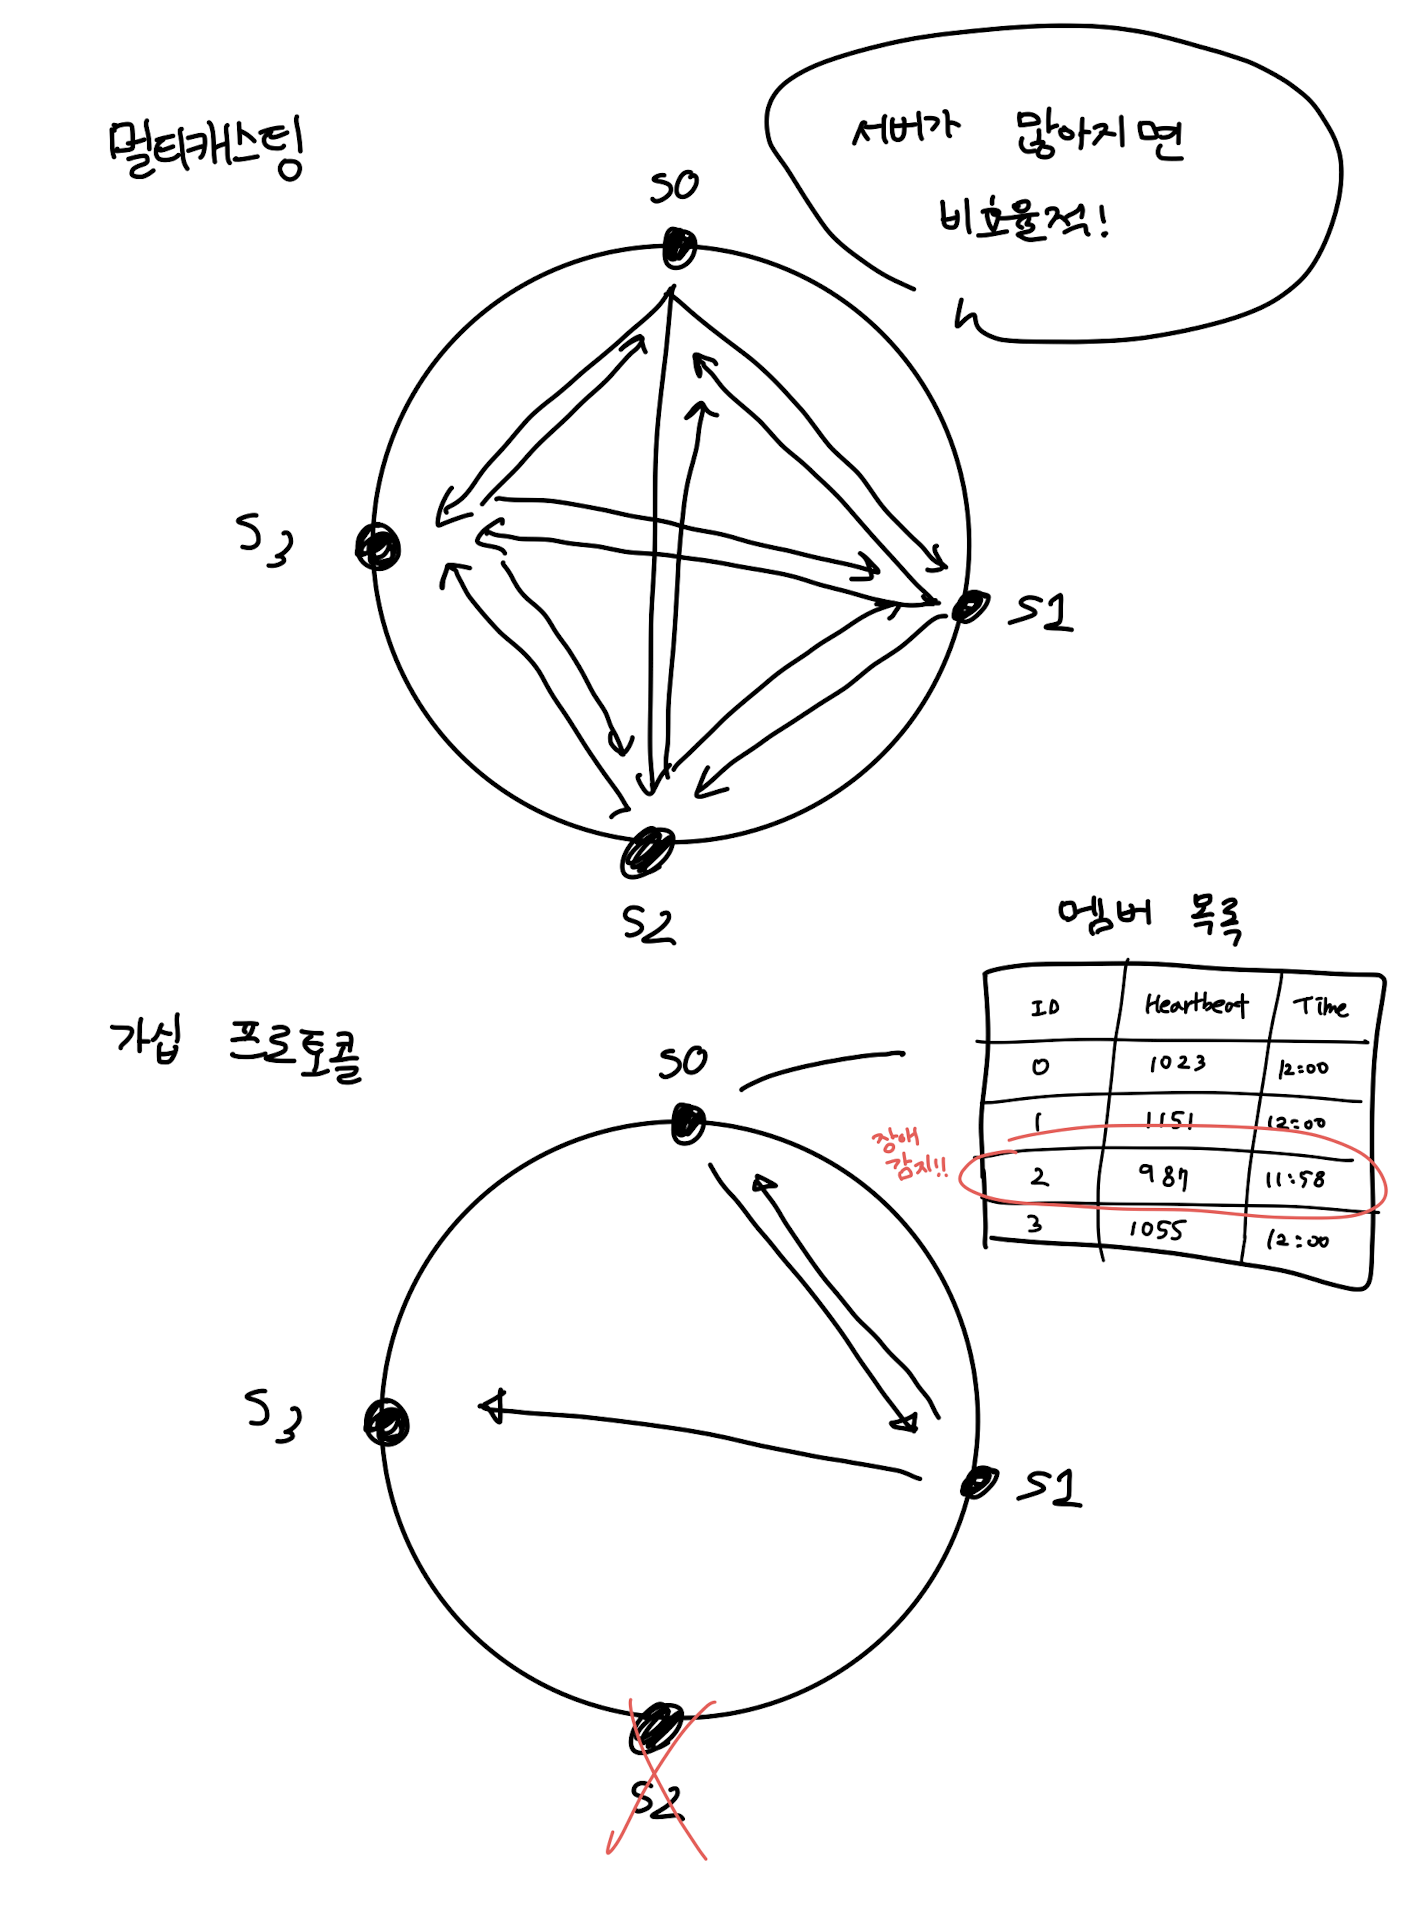 멀티캐스팅
서버가 많아지면
비효율적!
S0
S3
S1
S2
멤버 목록
ID Heartbeat Time
0 1023 12:00
1 1151 12:00
2 987 11:58
3 1055 12:00
장애
감지!!
가십 프로토콜
S0
S3
S1
S2